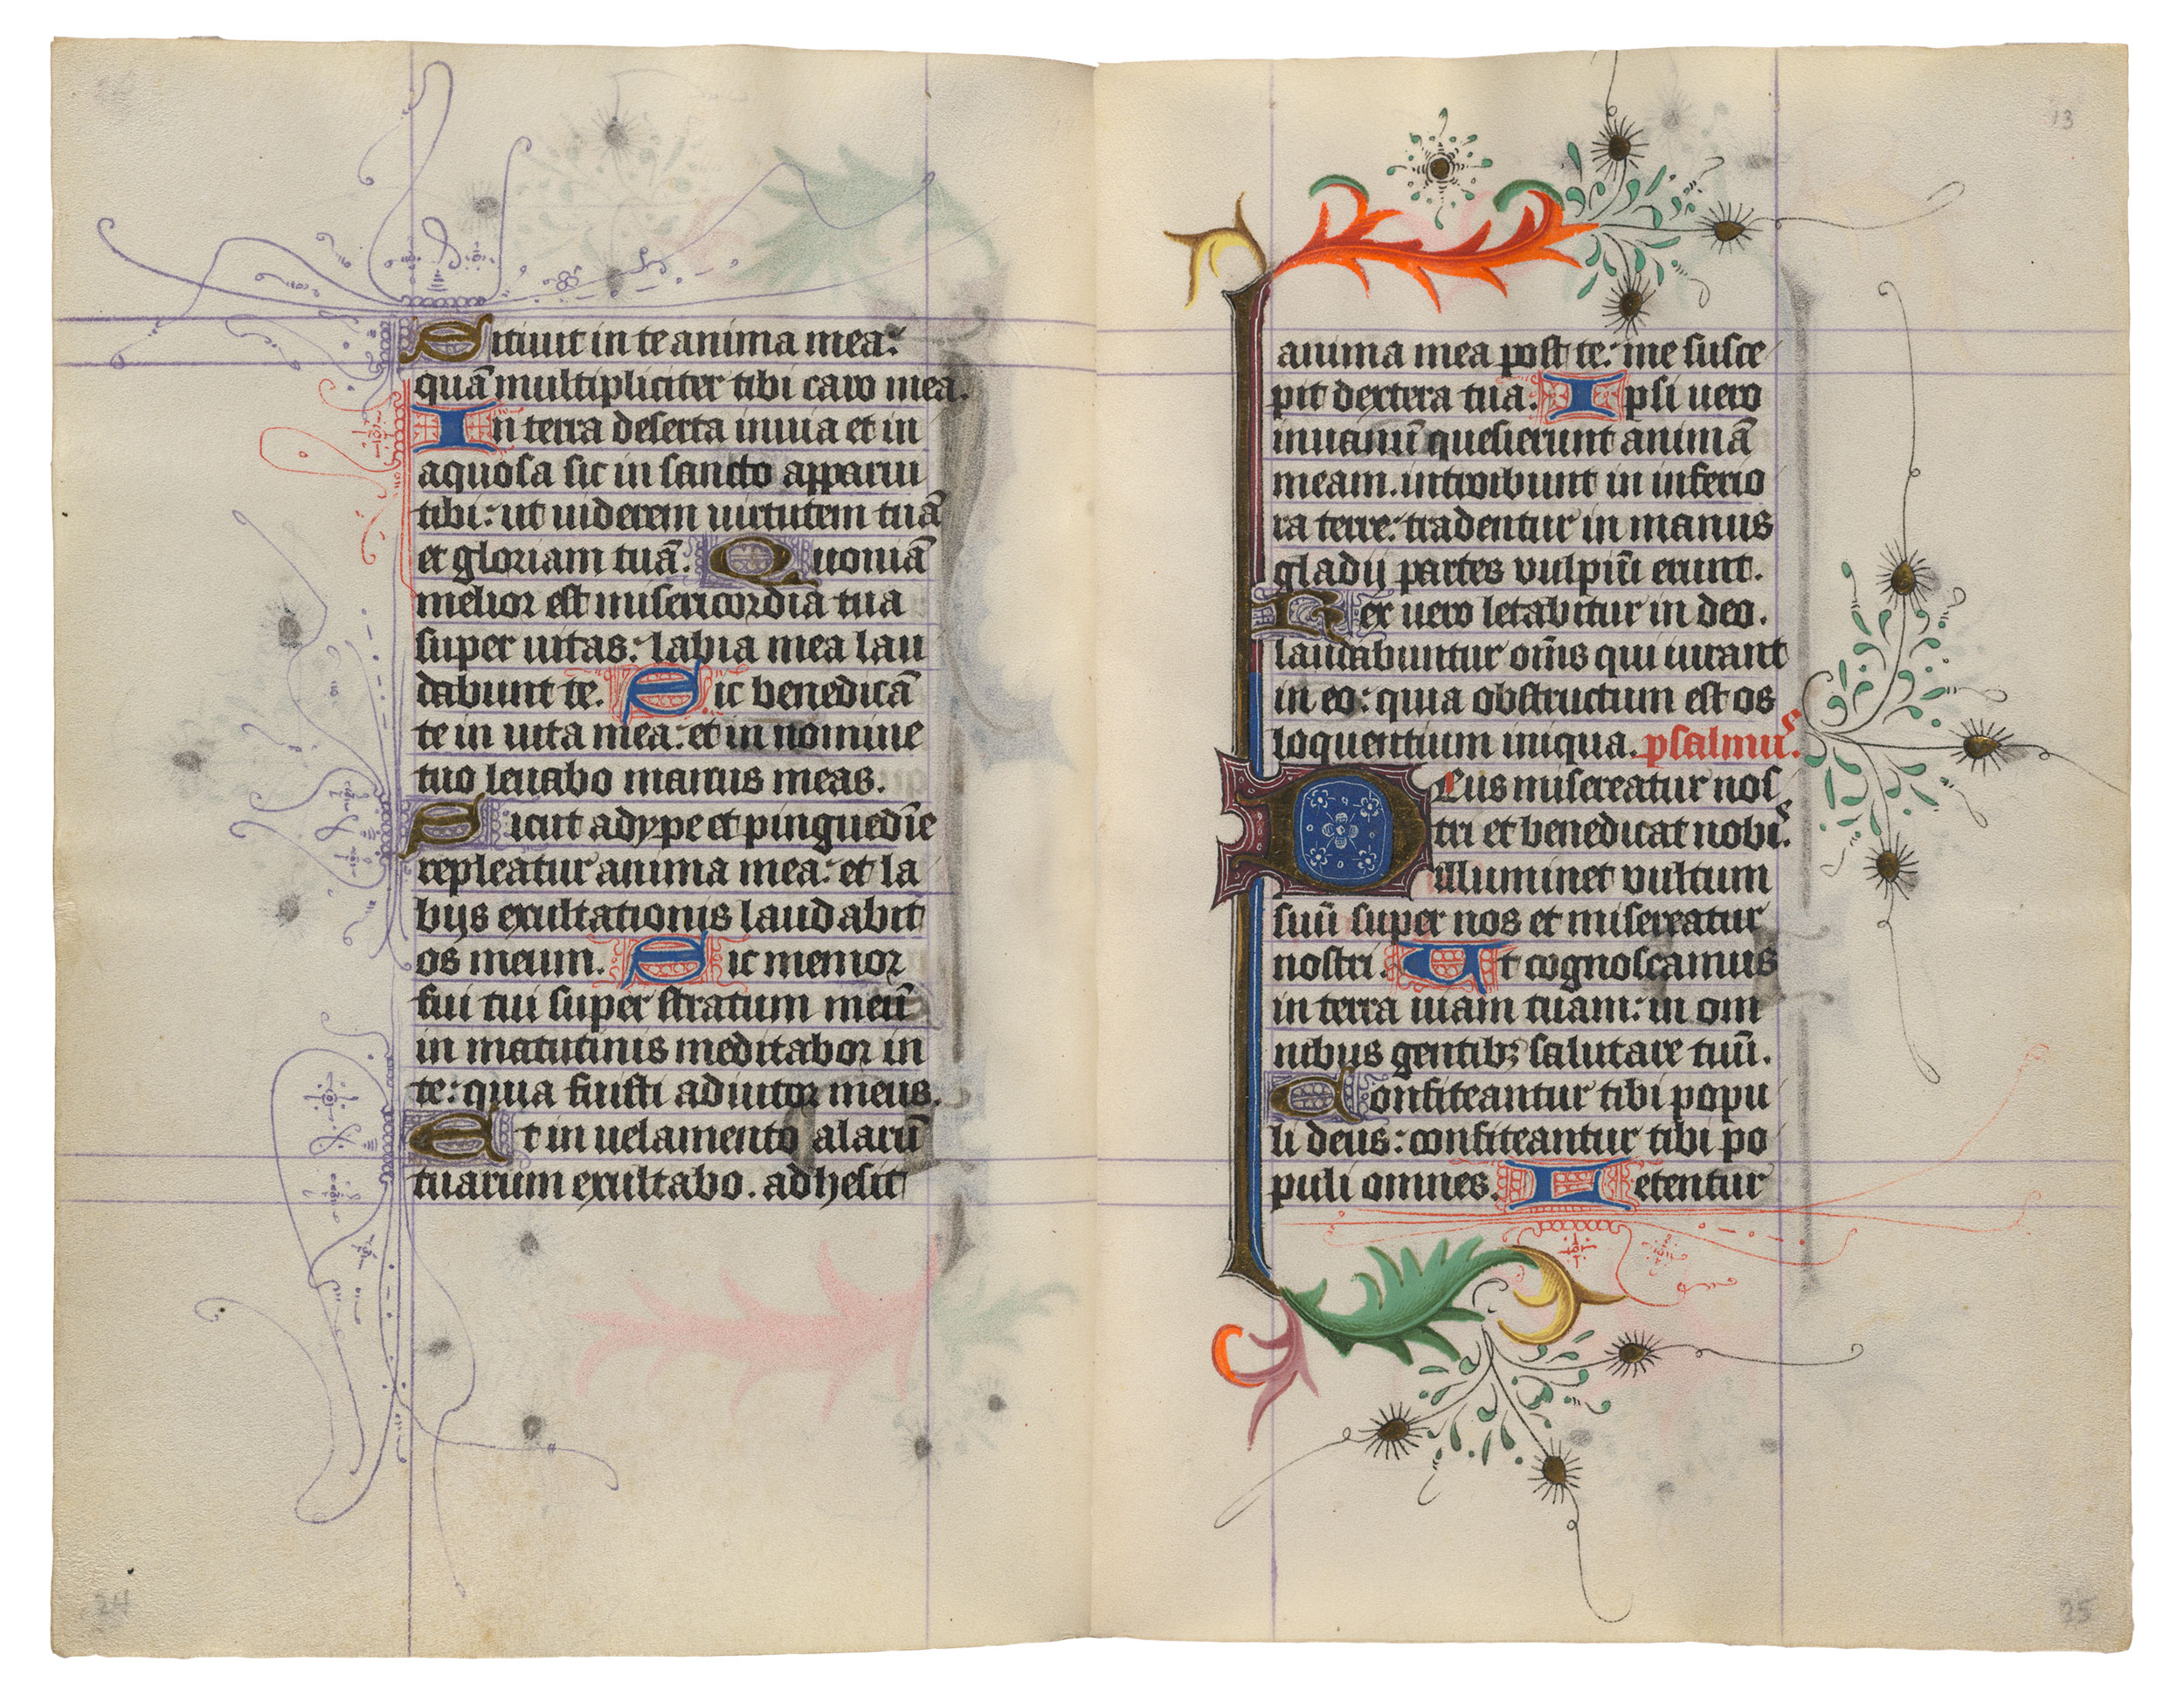 Sitiuit in te anima mea:
quā multipliciter tibi caro mea.
In terra deserta inuia et in
aquosa sic in sancto apparui
tibi: ut uiderem uirtutem tuā
et gloriam tuā. Quoniā
melior est misericordia tua
super uitas: labia mea lau
dabunt te. Sic benedicā
te in uita mea: et in nomine
tuo leuabo manus meas.
Sicut adype et pinguedīe
repleatur anima mea: et la
bijs exultationis laudabit
os meum. Sic memor
fui tui super stratum meū
in matutinis meditabor in
te: quia fuisti adiutor meus.
Et in uelamento alarū
tuarum exultabo. adhesit
24
13
anima mea post te: me susce
pit dextera tua. Ipsi uero
inuanū quesierunt animā
meam. introibunt in inferio
ra terre: tradentur in manus
gladij partes vulpiū erunt.
Rex uero letabitur in deo.
laudabuntur om̄s qui iurant
in eo: quia obstructum est os
loquentium iniqua. psalmus.
Deus misereatur nos
tri et benedicat nobis.
illuminet vultum
suū super nos et misereatur
nostri. Ut cognoscamus
in terra uiam tuam: in om
nibus gentibꝫ salutare tuū.
Confiteantur tibi popu
li deus: confiteantur tibi po
puli omnes. Letentur
25